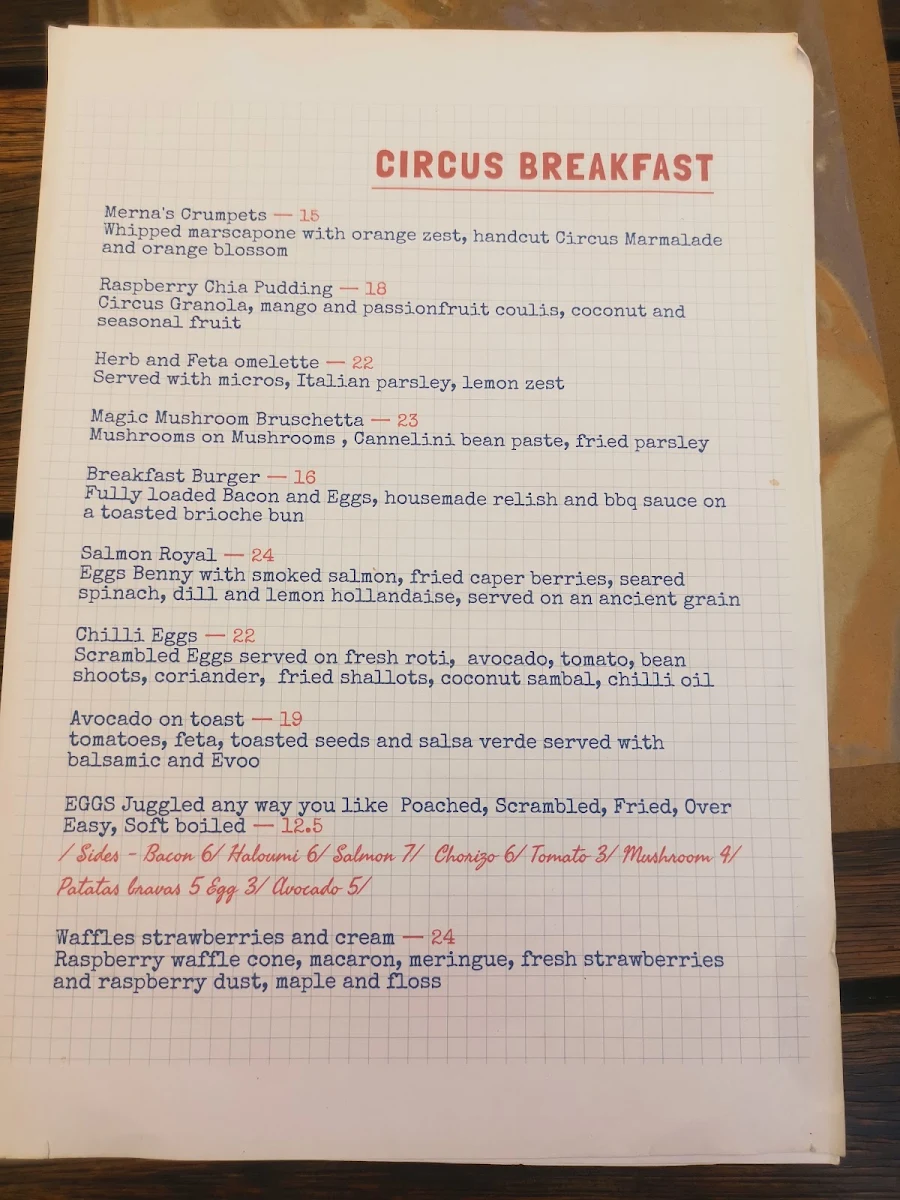 CIRCUS BREAKFAST
Merna's Crumpets — 15
Whipped marscapone with orange zest, handcut Circus Marmalade
and orange blossom
Raspberry Chia Pudding — 18
Circus Granola, mango and passionfruit coulis, coconut and
seasonal fruit
Herb and Feta omelette — 22
Served with micros, Italian parsley, lemon zest
Magic Mushroom Bruschetta — 23
Mushrooms on Mushrooms , Cannelini bean paste, fried parsley
Breakfast Burger — 16
Fully loaded Bacon and Eggs, housemade relish and bbq sauce on
a toasted brioche bun
Salmon Royal — 24
Eggs Benny with smoked salmon, fried caper berries, seared
spinach, dill and lemon hollandaise, served on an ancient grain
Chilli Eggs — 22
Scrambled Eggs served on fresh roti, avocado, tomato, bean
shoots, coriander, fried shallots, coconut sambal, chilli oil
Avocado on toast — 19
tomatoes, feta, toasted seeds and salsa verde served with
balsamic and Evoo
EGGS Juggled any way you like Poached, Scrambled, Fried, Over
Easy, Soft boiled — 12.5
/ Sides - Bacon 6/ Haloumi 6/ Salmon 7/ Chorizo 6/ Tomato 3/ Mushroom 4/
Patatas bravas 5 Egg 3/ Avocado 5/
Waffles strawberries and cream — 24
Raspberry waffle cone, macaron, meringue, fresh strawberries
and raspberry dust, maple and floss